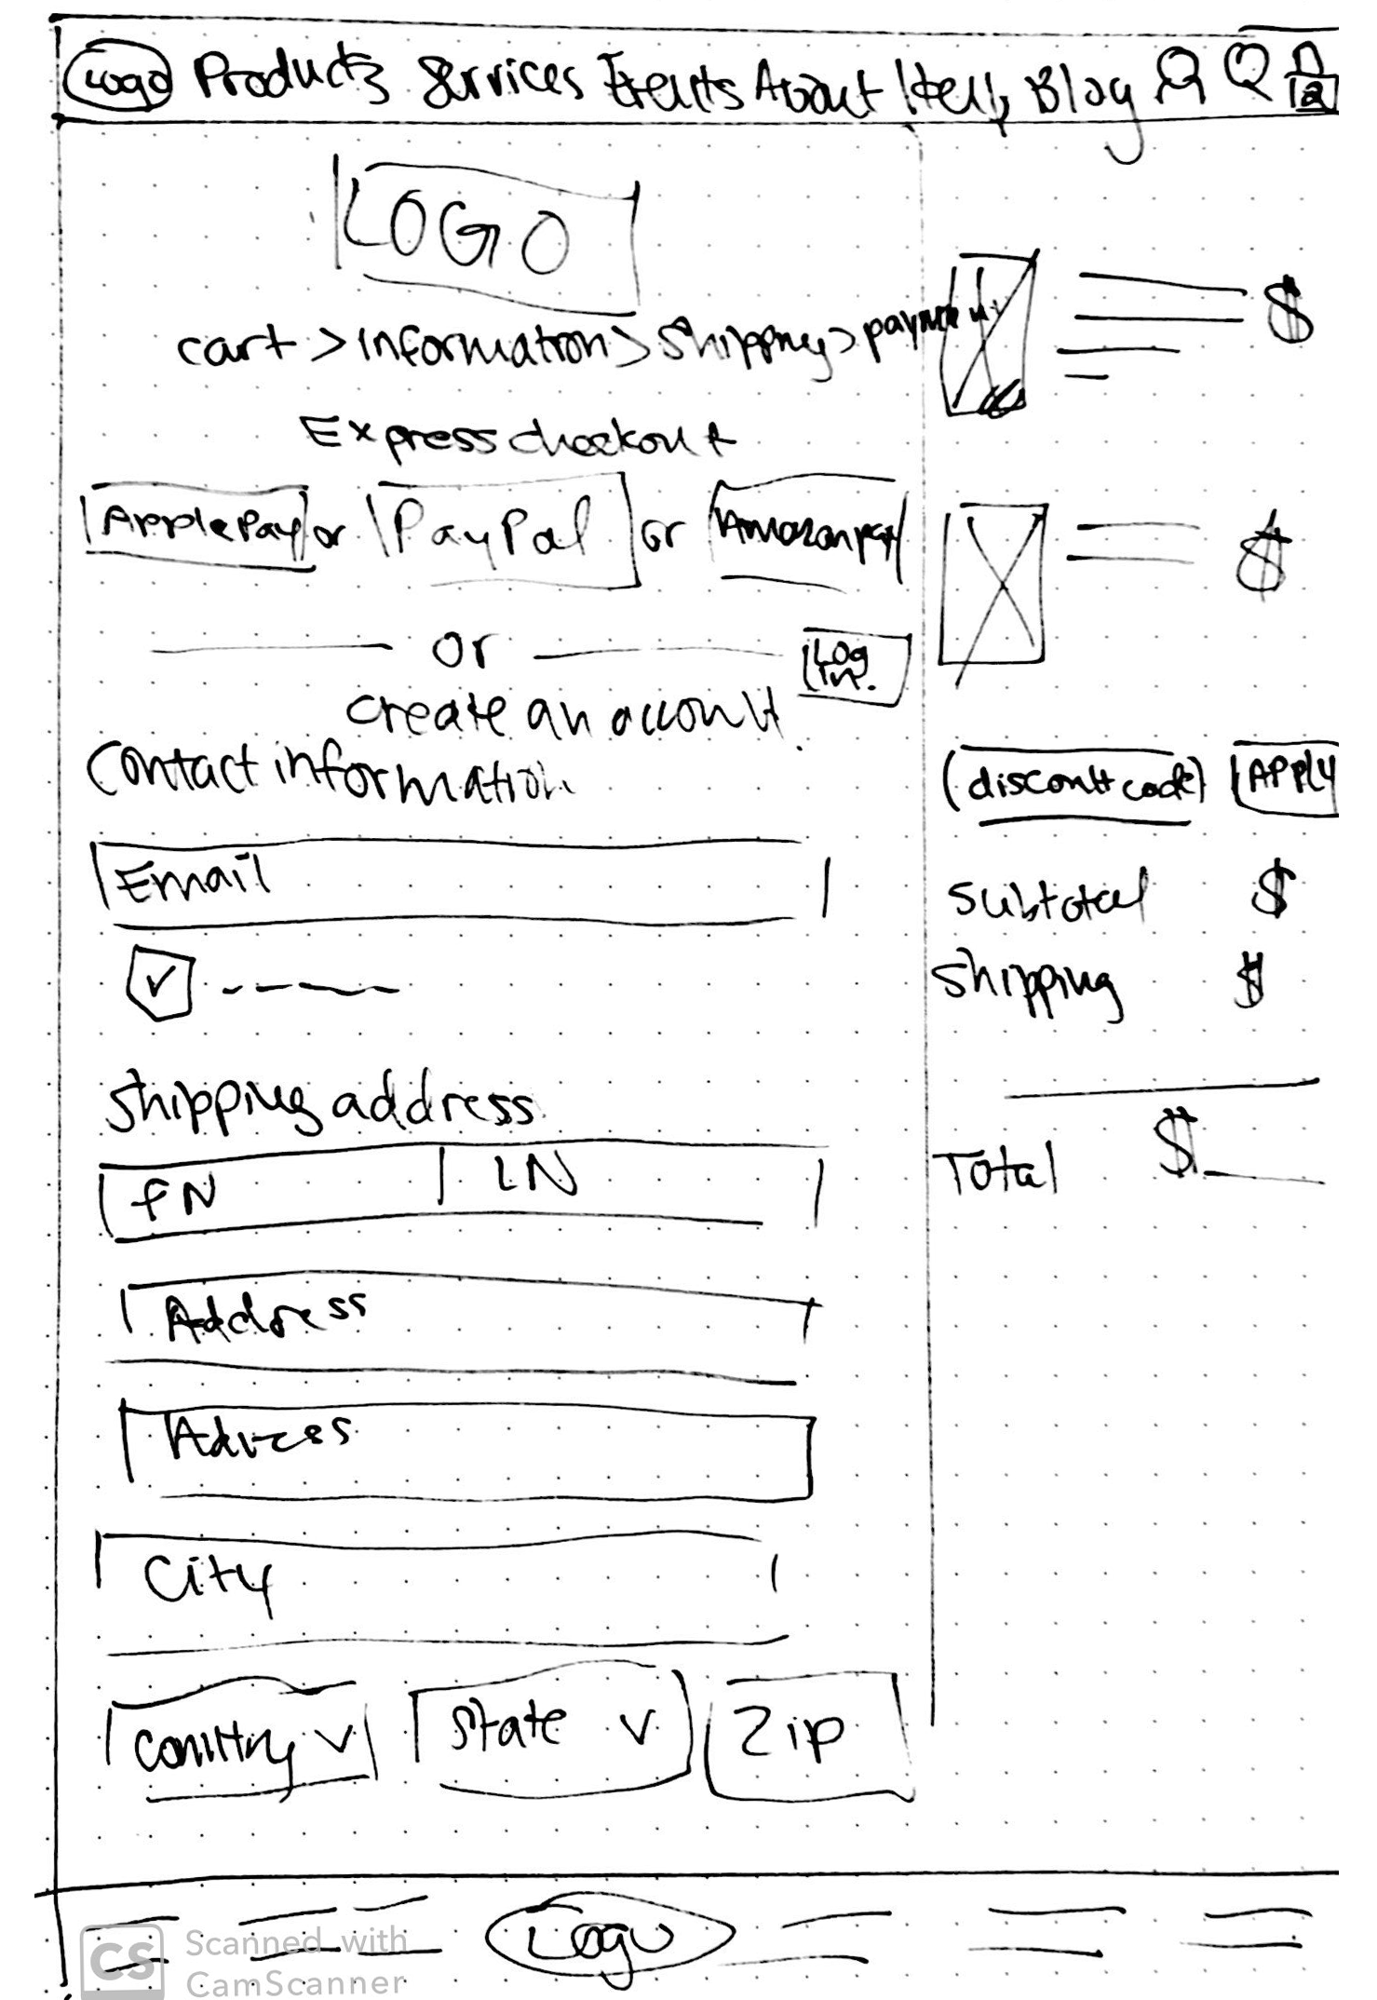 Logo Products Services Events About Help Blog
2
LOGO
cart > information > Shipping > payment
Express checkout
Apple Pay or PayPal or Amazon pay
or
Log in.
create an account
Contact information
Email
Shipping address
FN LN
Address
Address
City
Country State Zip
$
$
(discount code) APPLY
Subtotal $
Shipping $
Total $
Logo
CS Scanned with
CamScanner